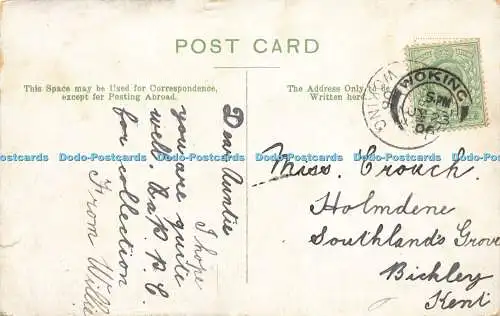 POST CARD
This Space may be Used for Correspondence,
except for Posting Abroad.
The Address Only to be
Written here.
WOKING
5 PM
06
WOKING
Dear Auntie
I hope
you are quite
well. P. P. C.
for collection
From Willie
Miss. Crouch.
Holmdene
Southlands Grove
Bickley
Kent
Dodo-Postcards Dodo-Postcards Dodo-Postcards Dodo-Postcards Dodo-Postcards